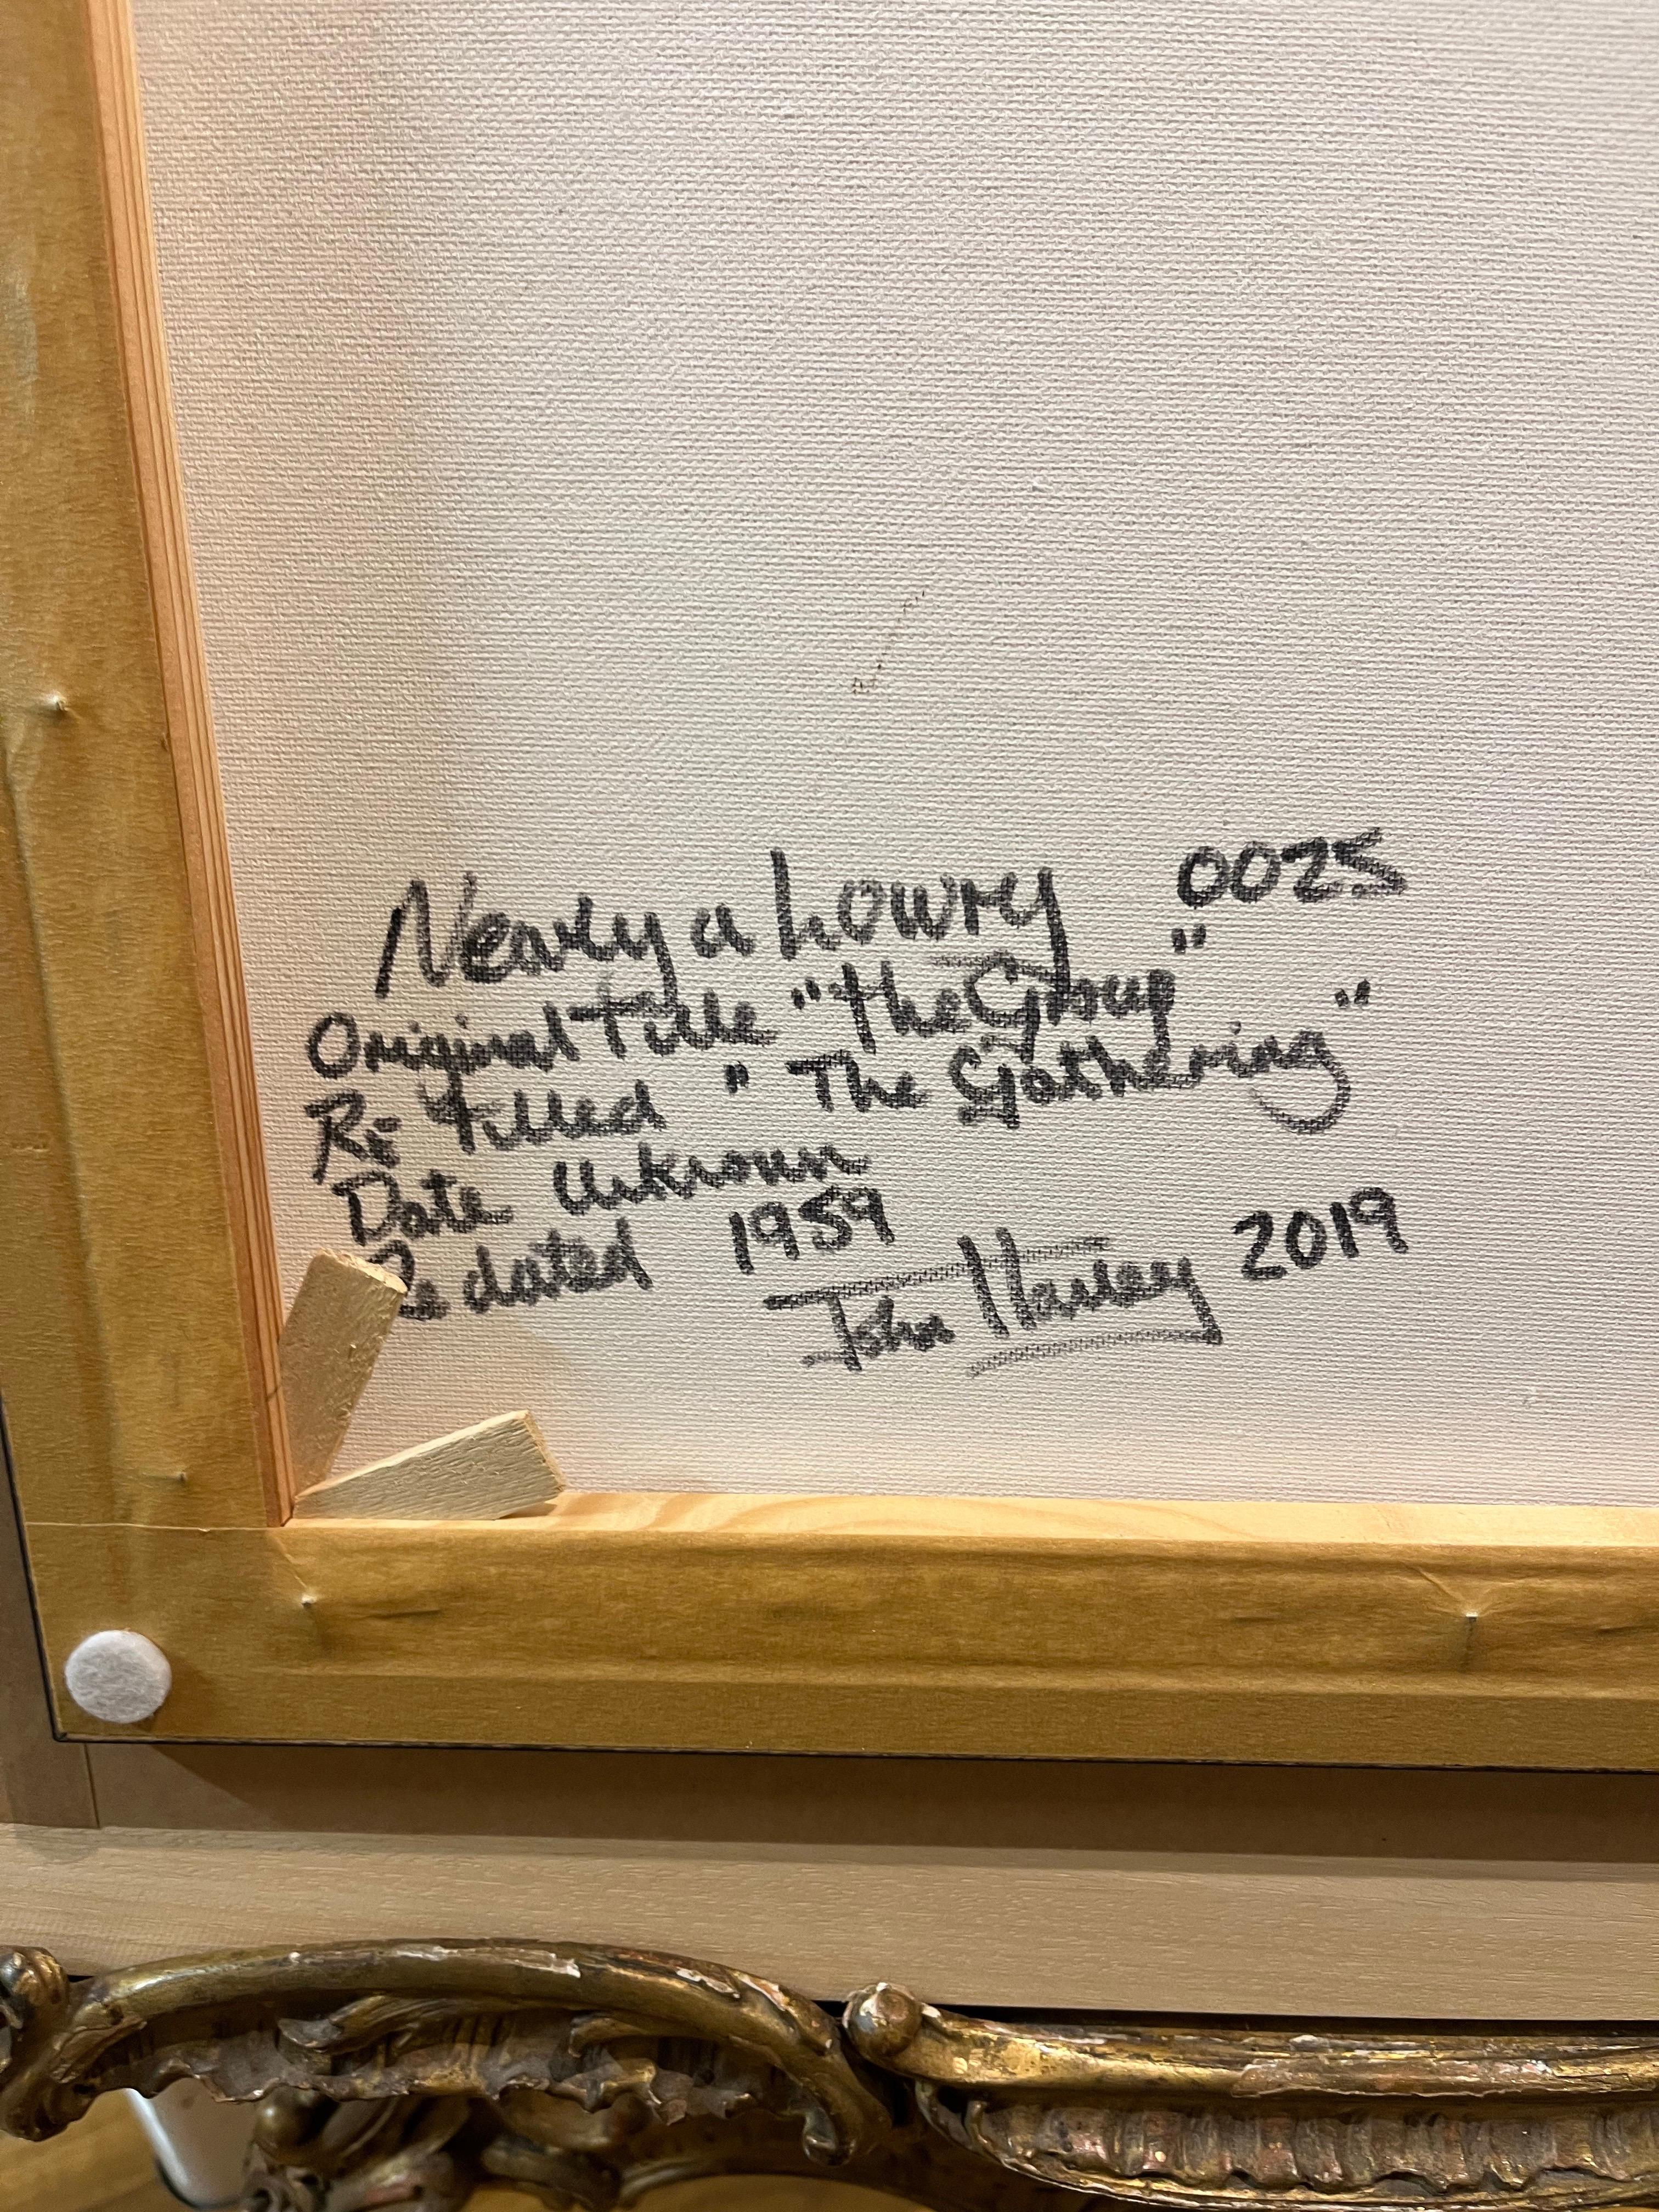 Nearly a Lowry 0025
Original Title "The Group"
Re Titled "The Gathering"
Date Unknown
Re dated 1959
John 2019